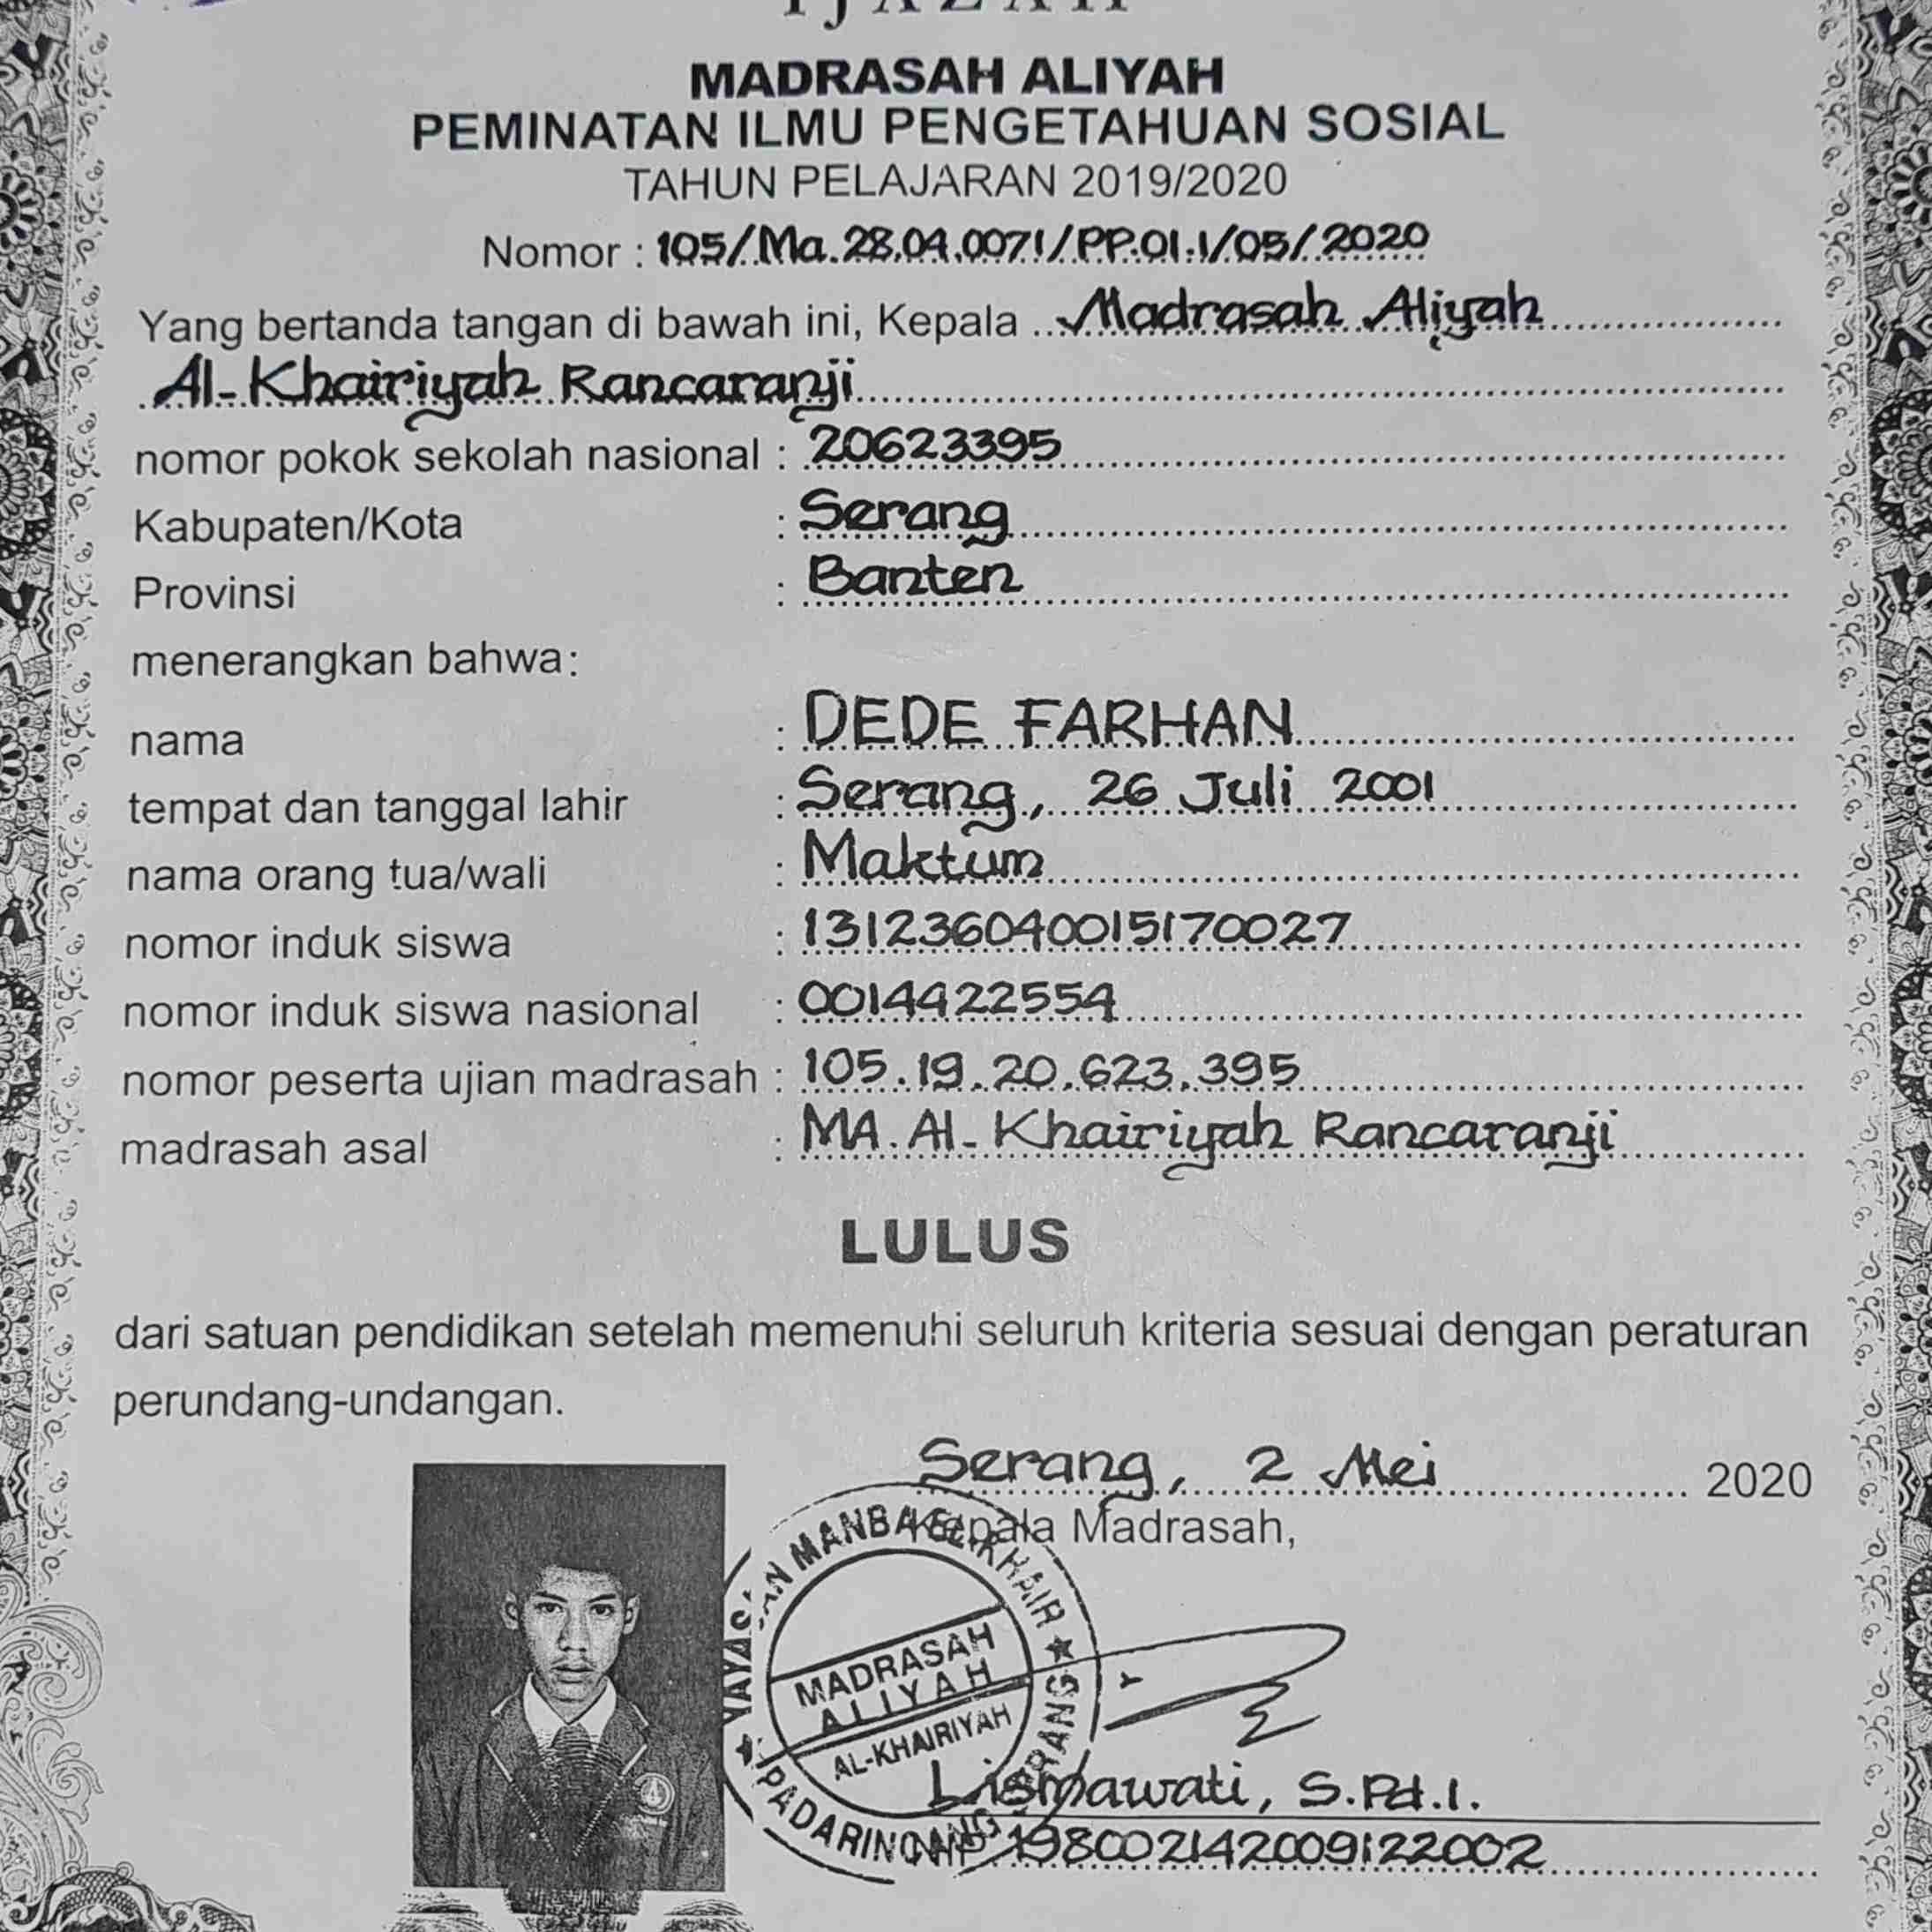 IJAZAH
MADRASAH ALIYAH
PEMINATAN ILMU PENGETAHUAN SOSIAL
TAHUN PELAJARAN 2019/2020
Nomor : 105/Ma.28.04.0071/PP.01.1/05/2020
Yang bertanda tangan di bawah ini, Kepala Madrasah Aliyah
Al-Khairiyah Rancaranji
nomor pokok sekolah nasional : 20623395
Kabupaten/Kota : Serang
Provinsi : Banten
menerangkan bahwa:
nama : DEDE FARHAN
tempat dan tanggal lahir : Serang, 26 Juli 2001
nama orang tua/wali : Maktum
nomor induk siswa : 131236040015170027
nomor induk siswa nasional : 0014422554
nomor peserta ujian madrasah : 105.19.20.623.395
madrasah asal : MA. Al-Khairiyah Rancaranji
LULUS
dari satuan pendidikan setelah memenuhi seluruh kriteria sesuai dengan peraturan
perundang-undangan.
Serang, 2 Mei 2020
Kepala Madrasah,
YAYASAN MANBA EL-KHAIR
MADRASAH
ALIYAH
AL-KHAIRIYAH
PADARINCANG SERANG
Lismawati, S.Pd.I.
NIP 198002142009122002